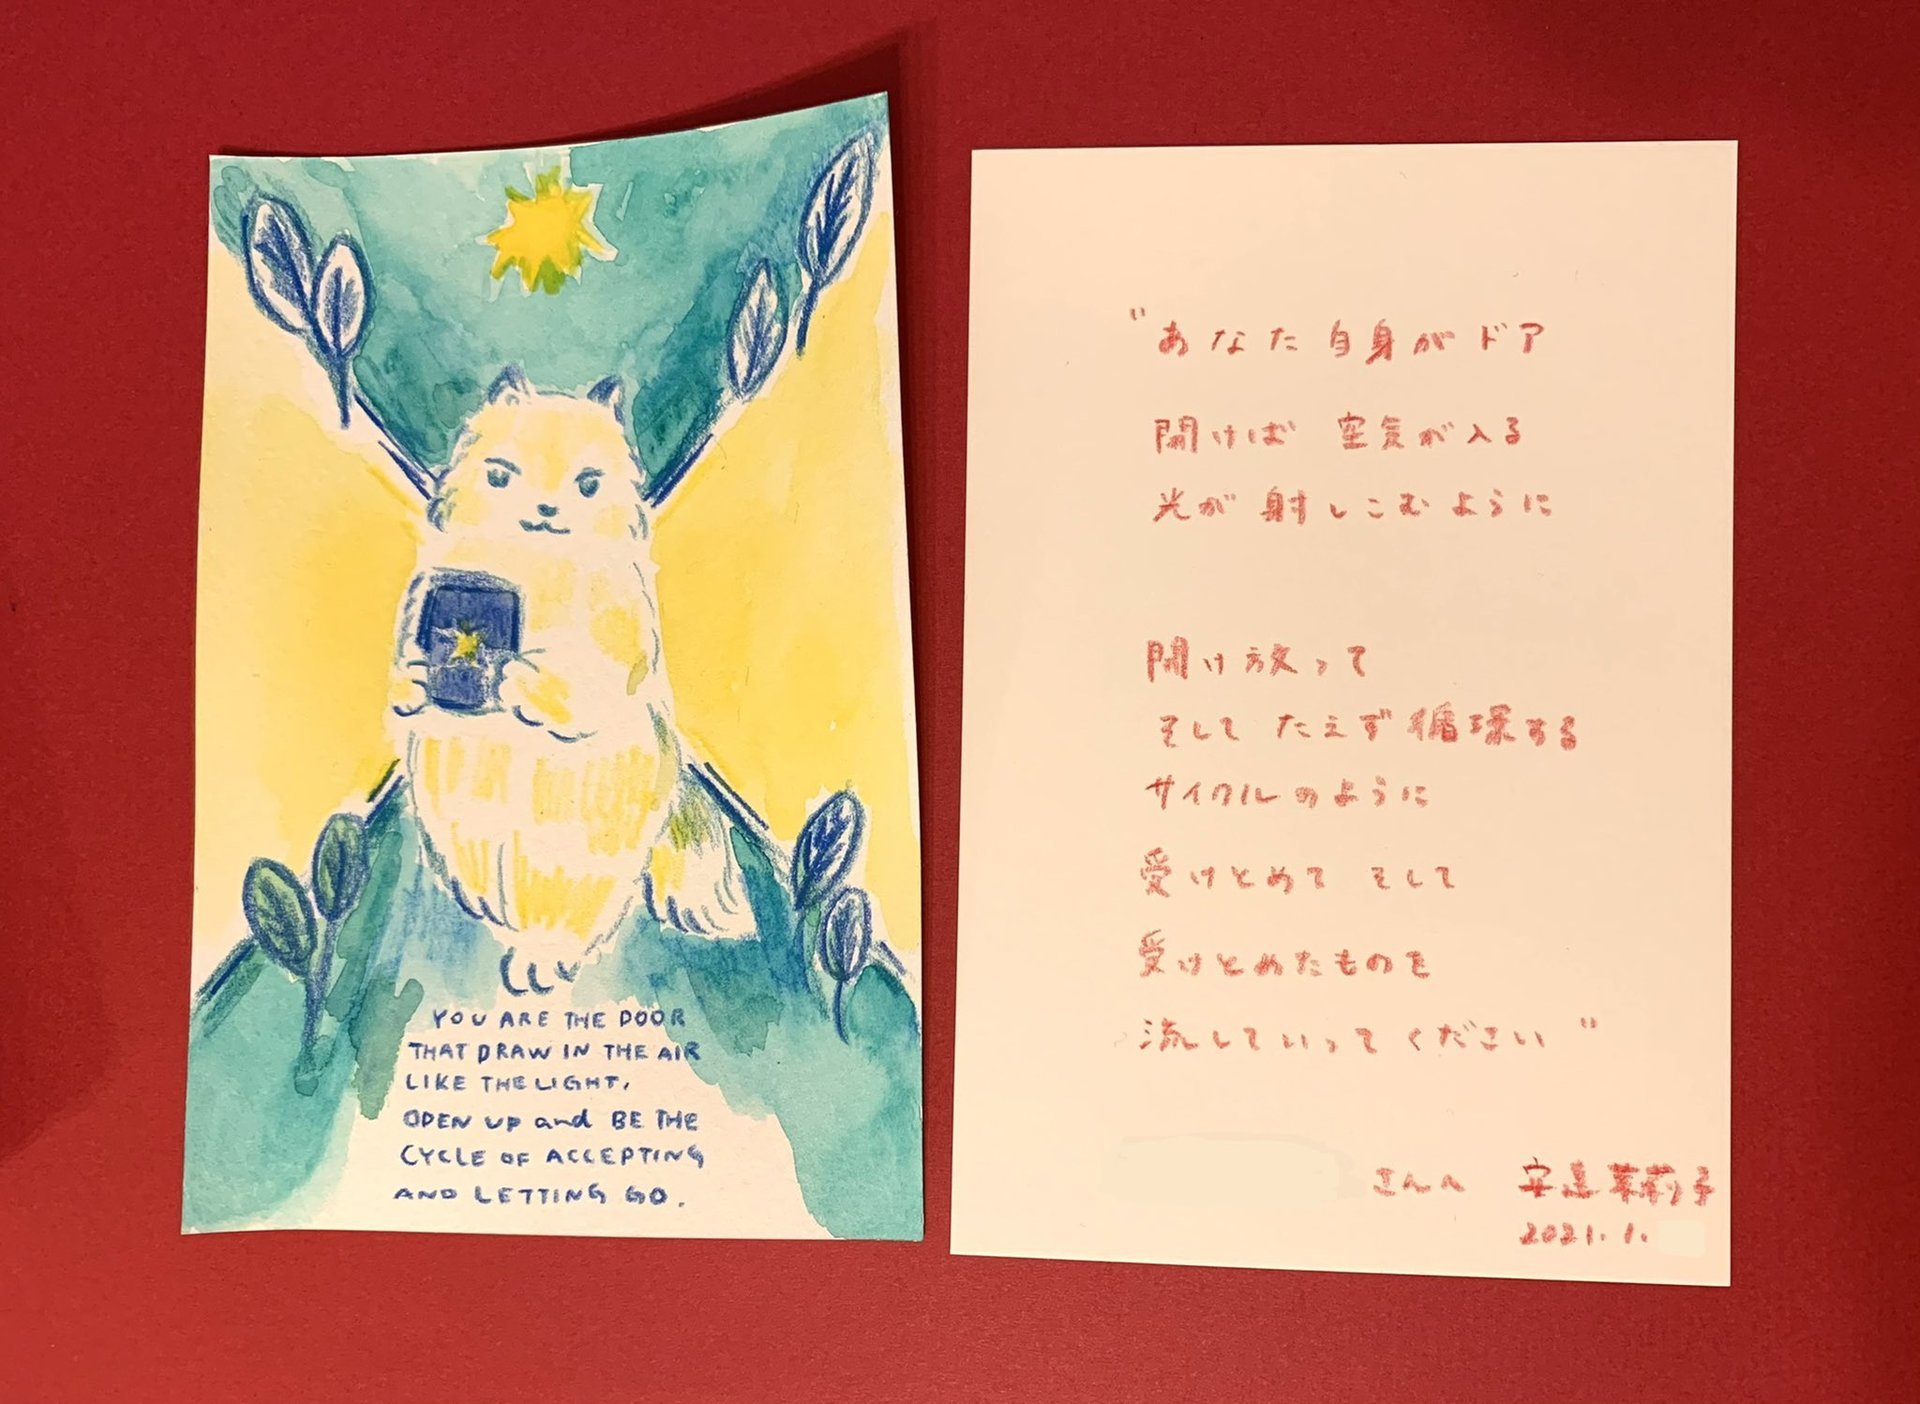 YOU ARE THE DOOR
THAT DRAW IN THE AIR
LIKE THE LIGHT,
OPEN UP and BE THE
CYCLE OF ACCEPTING
AND LETTING GO.
"あなた自身がドア
開けば 空気が入る
光が 射しこむように
開け放って
そして たえず循環する
サイクルのように
受けとめて そして
受けとめたものを
流していってください"
さんへ 安達茉莉子
2021.1.